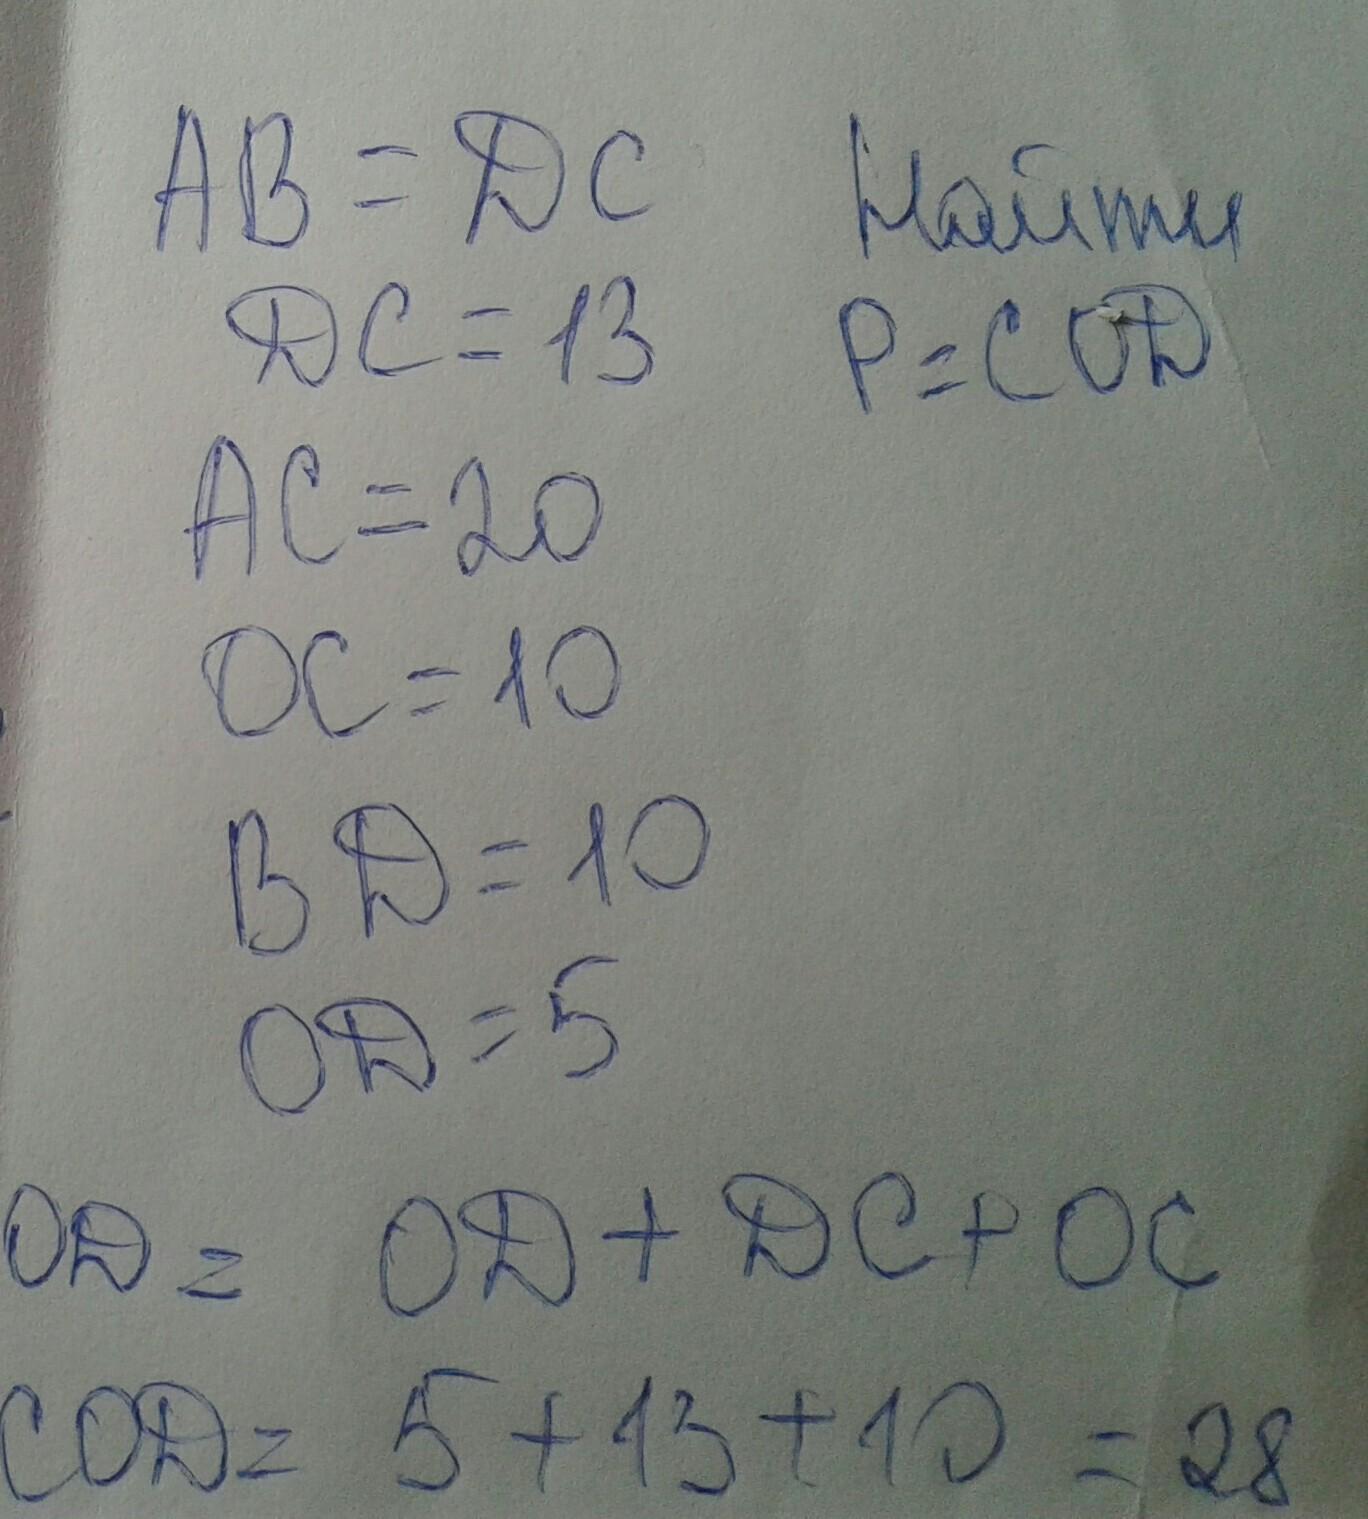 AB = DC Найти
DC = 13 P = COD
AC = 20
OC = 10
BD = 10
OD = 5
OD = OD + DC + OC
COD = 5 + 13 + 10 = 28